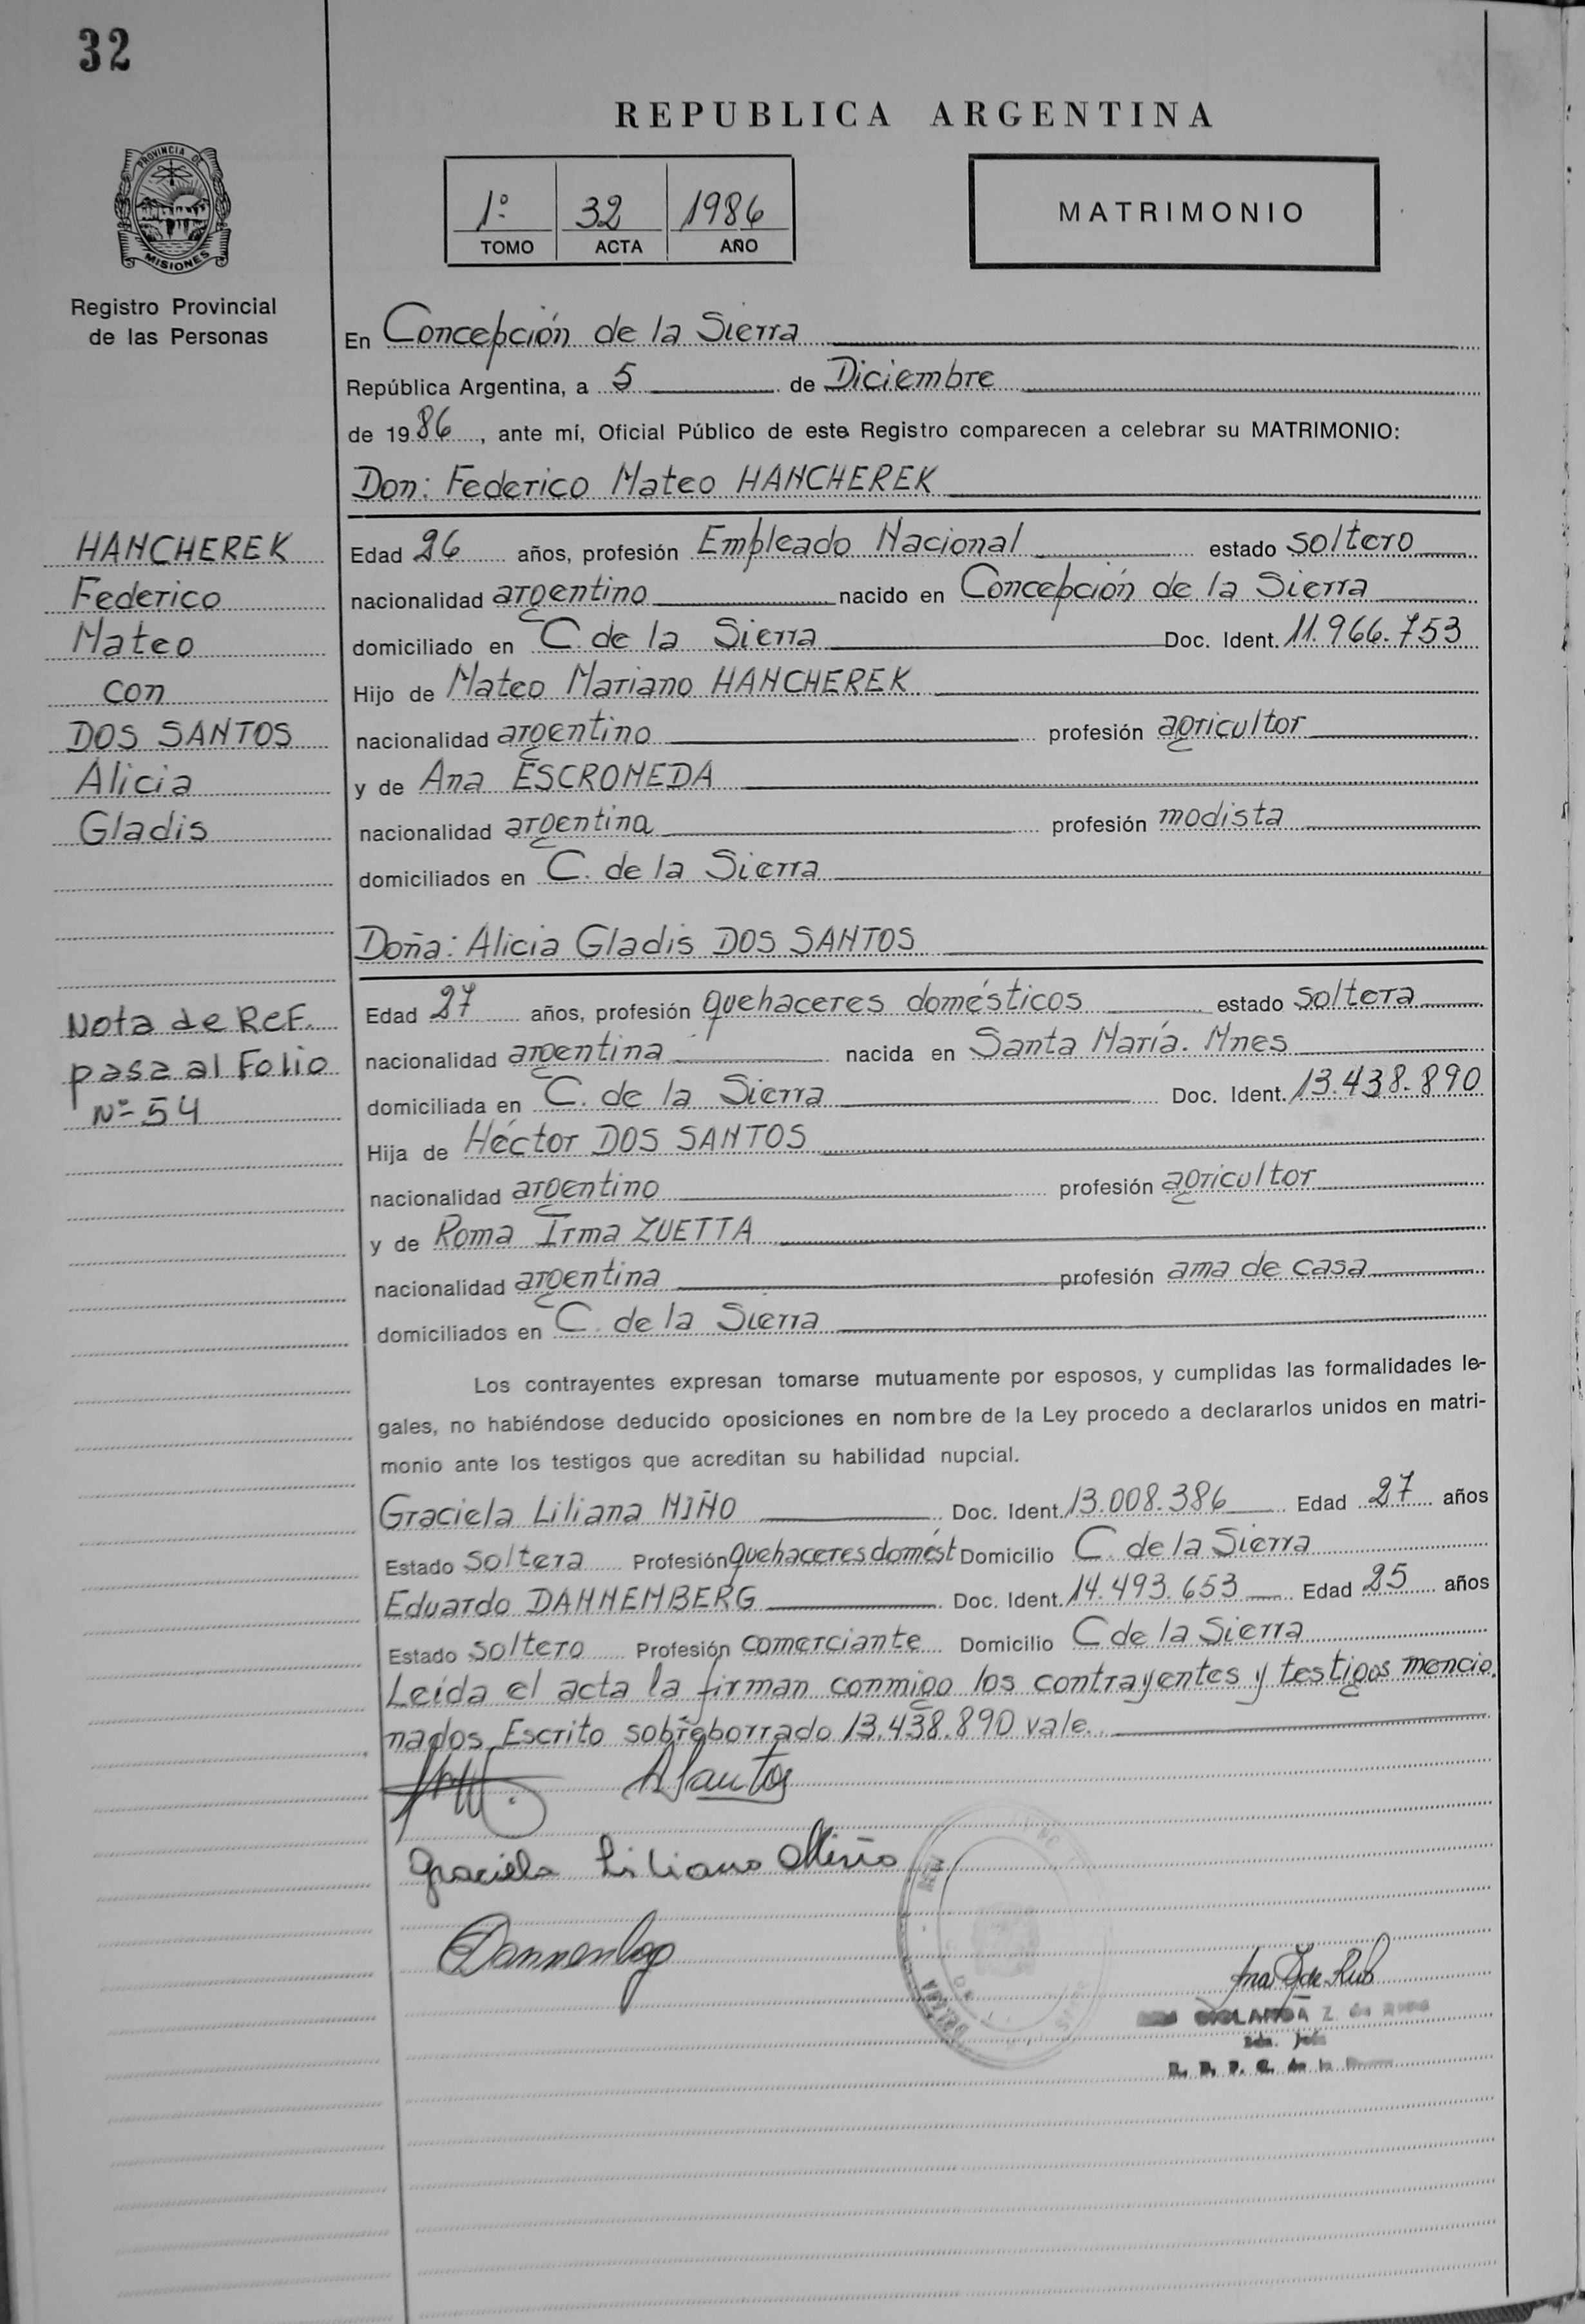 32
REPUBLICA ARGENTINA
PROVINCIA DE
MISIONES
Registro Provincial
de las Personas
1º 32 1986
TOMO ACTA AÑO
MATRIMONIO
En Concepción de la Sierra
República Argentina, a 5 de Diciembre
de 1986, ante mí, Oficial Público de este Registro comparecen a celebrar su MATRIMONIO:
Don: Federico Mateo HANCHEREK
HANCHEREK
Federico
Mateo
con
DOS SANTOS
Alicia
Gladis
Edad 26 años, profesión Empleado Nacional estado soltero
nacionalidad argentino nacido en Concepción de la Sierra
domiciliado en C. de la Sierra Doc. Ident. 11.966.753
Hijo de Mateo Mariano HANCHEREK
nacionalidad argentino profesión agricultor
y de Ana ESCROMEDA
nacionalidad argentina profesión modista
domiciliados en C. de la Sierra
Doña: Alicia Gladis DOS SANTOS
Nota de Ref.
pasa al Folio
Nº 54
Edad 27 años, profesión quehaceres domésticos estado soltera
nacionalidad argentina nacida en Santa María. Mnes
domiciliada en C. de la Sierra Doc. Ident. 13.438.890
Hija de Héctor DOS SANTOS
nacionalidad argentino profesión agricultor
y de Roma Irma ZUETTA
nacionalidad argentina profesión ama de casa
domiciliados en C. de la Sierra
Los contrayentes expresan tomarse mutuamente por esposos, y cumplidas las formalidades le-
gales, no habiéndose deducido oposiciones en nombre de la Ley procedo a declararlos unidos en matri-
monio ante los testigos que acreditan su habilidad nupcial.
Graciela Liliana MIÑO Doc. Ident. 13.008.386 Edad 27 años
Estado soltera Profesión quehaceres domést Domicilio C. de la Sierra
Eduardo DANNEMBERG Doc. Ident. 14.493.653 Edad 25 años
Estado soltero Profesión comerciante Domicilio C de la Sierra
Leída el acta la firman conmigo los contrayentes y testigos mencio.
nados. Escrito sobreborrado 13.438.890 vale.
ASantos
Graciela Liliana Miño
Dannemberg